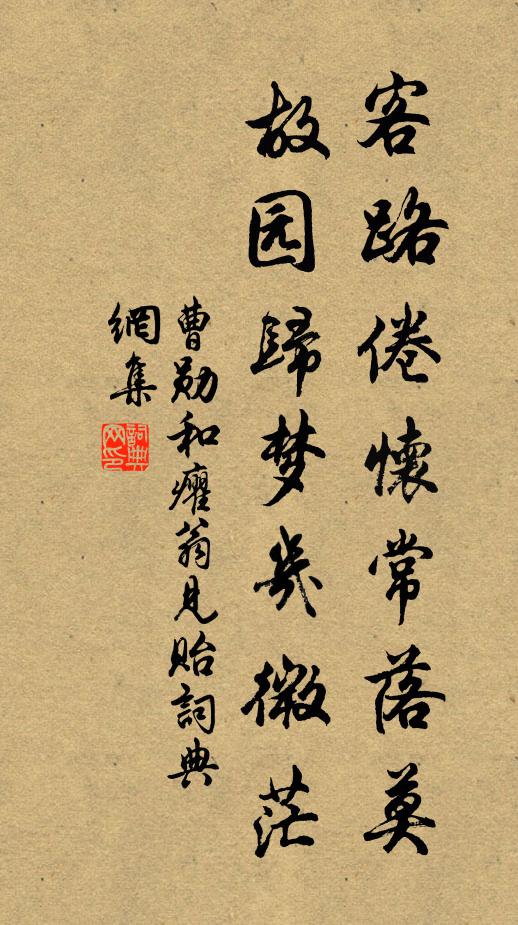 客路倦懷常落莫
故园歸梦幾微茫
曹勋和癯翁見貽詞典
網集
詞典网印